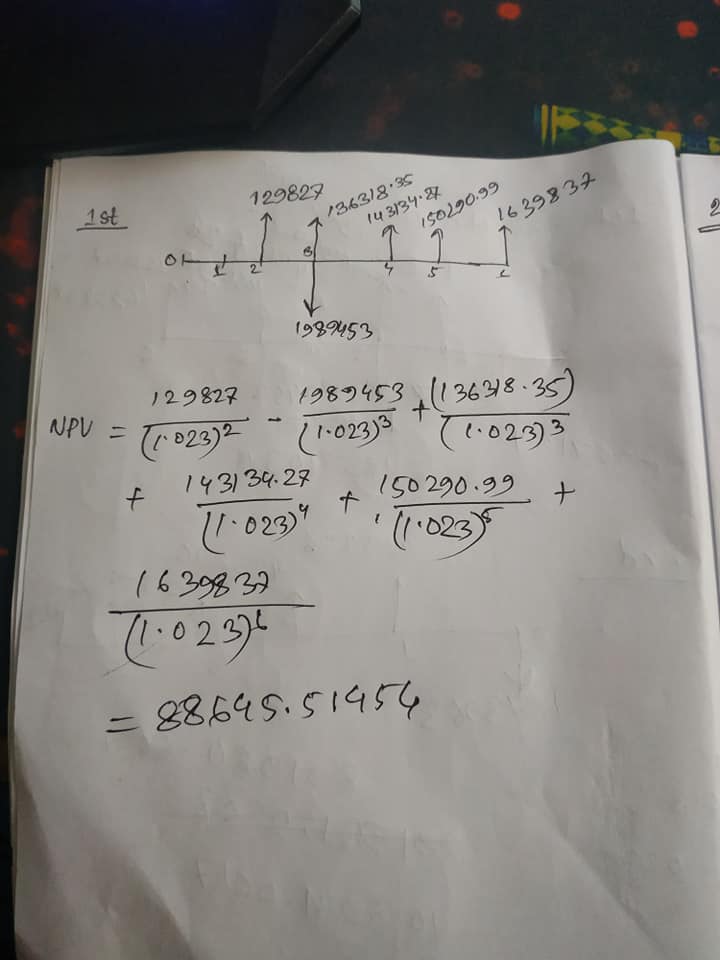 1st
129827 136318.35 143134.27 150290.99 1639837
0 1 2 3 4 5 6
1989453
NPV = 129827/(1.023)^2 - 1989453/(1.023)^3 + (136318.35)/(1.023)^3
+ 143134.27/(1.023)^4 + 150290.99/(1.023)^5 +
1639837/(1.023)^6
= 88645.51454
2